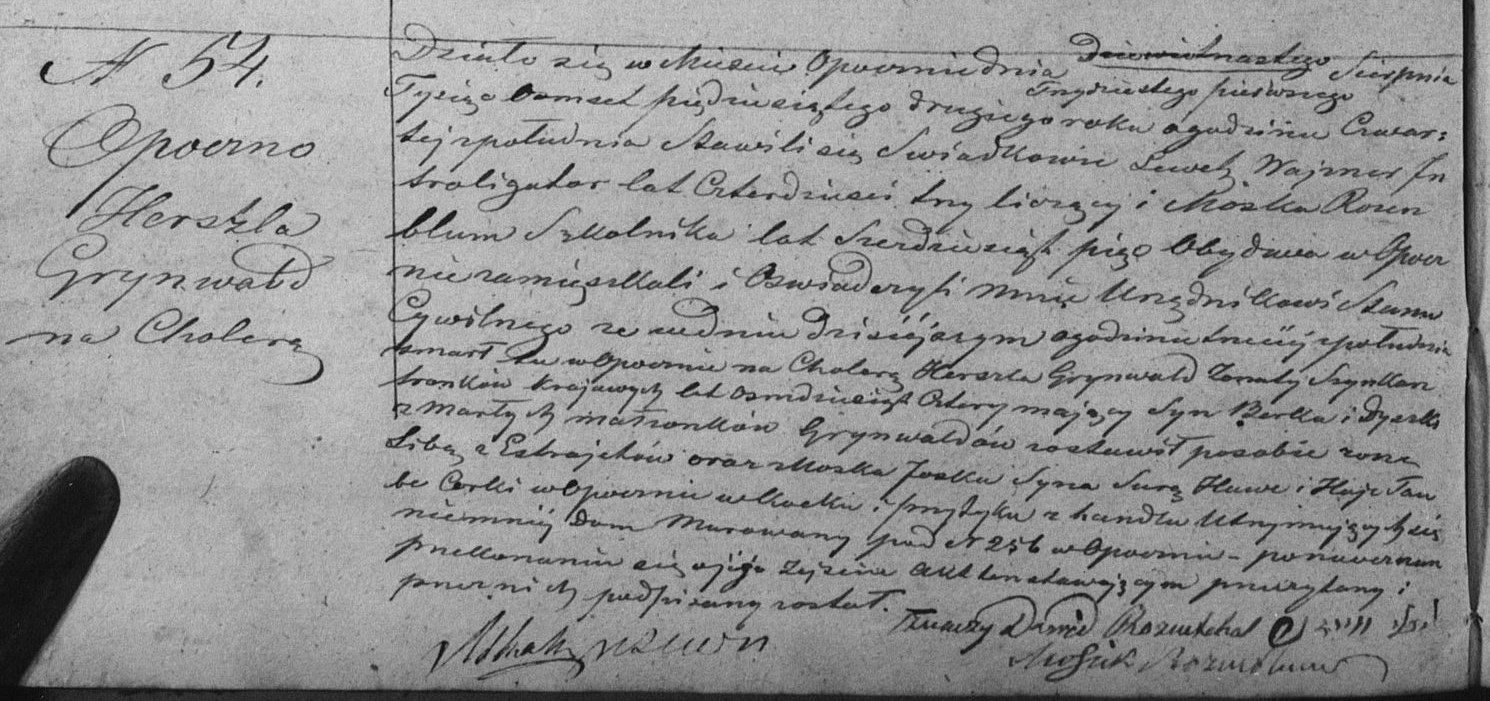 N 54.
Opoczno
Herszla
Grynwald
na Cholerę
Działo się w Mieście Opocznie dnia Dziewiętnastego Sierpnia
Trzydziestego pierwszego
Tysiąc Ośmset pięćdziesiątego drugiego roku o godzinie Czwar:
tej z południa Stawili się Swiadkowie Lewek Wajzner In
troligator lat Czterdzieści trzy liczący i Moska Rozen
blum Szkolnika lat Szerdziesiąt pięć Obydwa w Opocz
nie zamięszkali i Oswiadczyli mnie Urzędnikowi Stanu
Cywilnego ze w dniu dzisiéjszym o godzinie trzeciéj z południa
umarł tu w Opocznie na Cholerę Herszla Grynwald Zonaty Szynkarz
tronków krajowych lat Osmdziesiąt Cztery mający Syn Berka i Dyszki
zmarłych małzonków Grynwaldów zostawił po sobie zonę
Libę z Estrajchów oraz Moska Joska Syna Surę Hawe i Haje Tau
be Corki w Opocznie w Kocku i Przytyku z handlu Utrzymujących się
niemniéj Dom Murowany pod N 256 w Opocznie – po naocznem
przekonaniu się o jéjgo Zejściu Akt ten stawającym przeczytany i
przez nich podpisany został.
Tłumaczy Dawid Rozental
Moszek Rozenblum